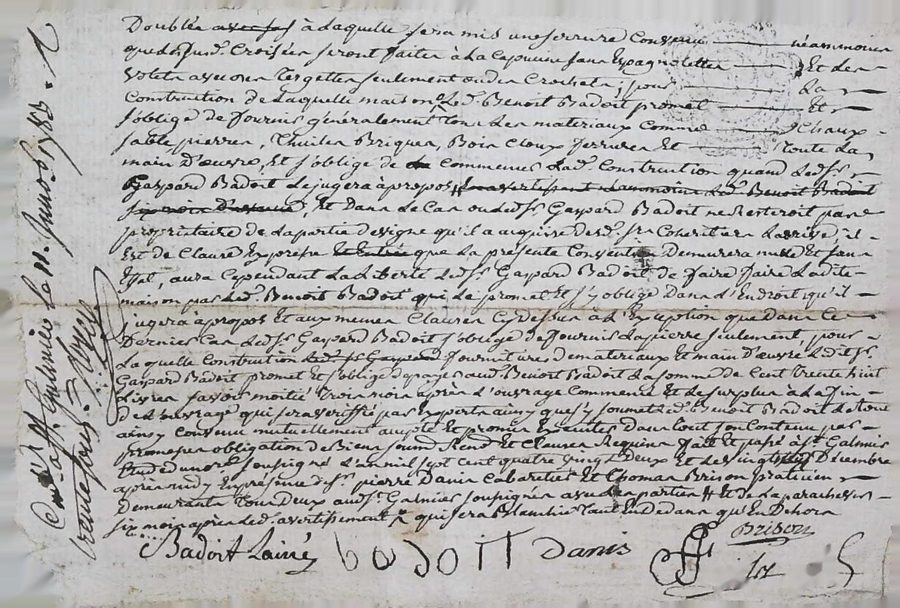 Doublée avec fer à Laquelle sera mis une serrure Convenue néammoins
que desd. Croisées seront faites à La Capucine sans Espagnolettes Et les
volets avec des Tergettes seulement ou des Crochets, pour La
Construction de Laquelle maison led. Benoit Badoit promet Et
s'oblige de fournir généralement Tous Les materiaux Comme Chaux
sable, pierres, Thuiles Briques, Bois Cloux ferrures Et Toute La
main D'œuvre, Et s'oblige de Commencer Lad. Construction quand Led. Sr.
Gaspard Badoit Le jugera àpropos avertissant Led. Benoit Badoit
six mois D'avance, Et Dans Le Cas ou led. Sr. Gaspard Badoit ne resteroit pas
propriétaire de La partie de vigne qu'il a acquise de sd. Sr. Coheritier il
Est de Clause Expresse que La présente Convention Demeurera nulle Et sans
Effet, aura Cependant La Liberté Led. Sr. Gaspard Badoit de faire faire Ladite
maison par Led. Benoit Badoit qui Le promet Et s'y oblige Dans L'Endroit qu'il
jugera àpropos Et aux memes Clauses Cy Dessus à L'Exception que Dans Ce
Dernier Cas Led. Sr. Gaspard Badoit s'oblige de fournir La pierre seulement, pour
Laquelle Construction Led. Sr. Gaspard fourniture de materiaux Et main D'œuvre Ledit Sr.
Gaspard Badoit promet Et s'oblige de payer aud. Benoit Badoit La somme de Cent Trente huit
Livres savoir moitié Trois mois après L'ouvrage Commencé Et Le surplus à La fin
de L'ouvrage qui sera vériffié par Experts ainsy que s'y soumet led. Benoit Badoit Le tout
ainsy Convenu mutuellement accepté Et promis Executer Dans tout son Contenu par
promesses obligation de Biens soum. Renon. Et Clauses Requises fait Et passé à St. Galmier
Etude du nore. soussigné L'an mil sept cent quatre vingt Deux Et Le vingt Décembre
après midy En présence de Sr. pierre Danis Cabaretier Et Thomas Brison praticien
Demeurants Tous Deux aud. St. Galmier soussignés avec Les parties Et
six mois après led. avertissement qui sera Blanchie Tant En dedans qu'En Dehors
Badoit Lainé badoit Danis Brison
Con. à St. Galmier le 11. Janer. 1783. R
trente sous.